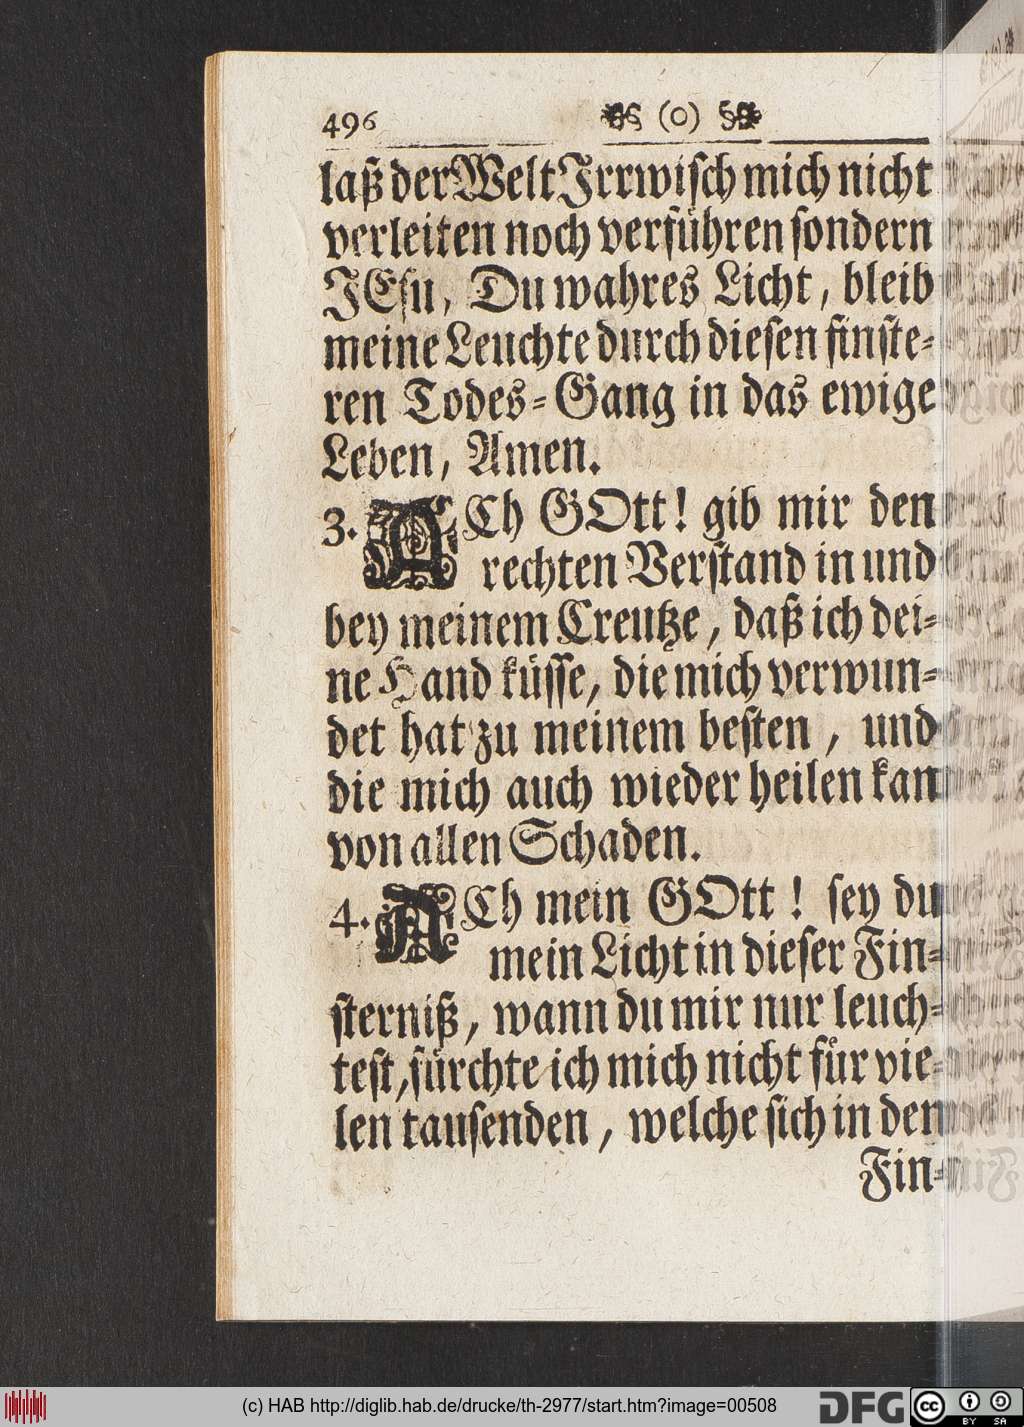 496 (o)
laß der Welt Irrwisch mich nicht
verleiten noch verführen sondern
JEsu, Du wahres Licht, bleib
meine Leuchte durch diesen finste-
ren Todes-Gang in das ewige
Leben, Amen.
3. ACh GOtt! gib mir den
rechten Verstand in und
bey meinem Creutze, daß ich dei-
ne Hand küsse, die mich verwun-
det hat zu meinem besten, und
die mich auch wieder heilen kan
von allen Schaden.
4. ACh mein GOtt! sey du
mein Licht in dieser Fin-
sterniß, wann du mir nur leuch-
test, fürchte ich mich nicht für vie-
len tausenden, welche sich in den
Fin-
(c) HAB http://diglib.hab.de/drucke/th-2977/start.htm?image=00508
DFG
cc BY SA